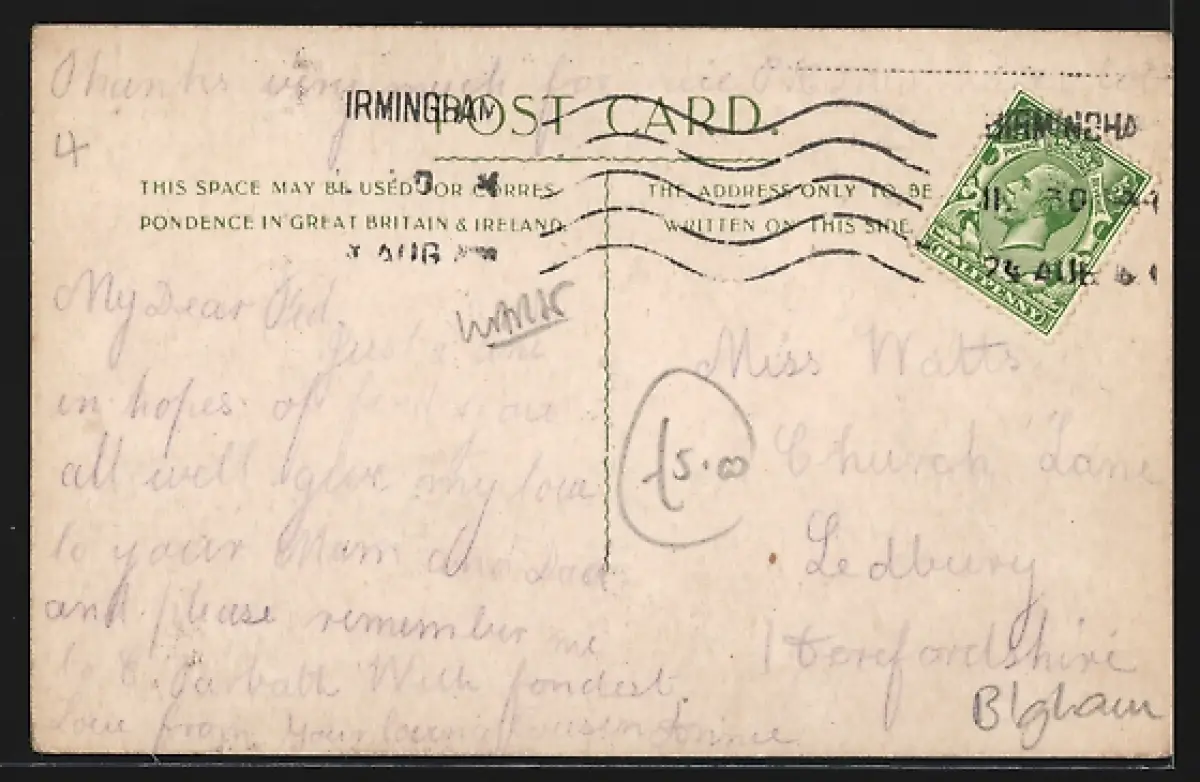 Thanks very much for
4
POST CARD.
IRMINGHAM
AUG
IRMINGHA
30
24 AUG
HALFPENNY
THIS SPACE MAY BE USED FOR CORRES-
PONDENCE IN GREAT BRITAIN & IRELAND.
THE ADDRESS ONLY TO BE
WRITTEN ON THIS SIDE.
My Dear
Just a line
in hopes of
all well give my love
to your Mam and Dad
and please remember me
to With fondest
Love from your loving
Miss Watts
Church Lane
Ledbury
Herefordshire
£5.00
B'gham